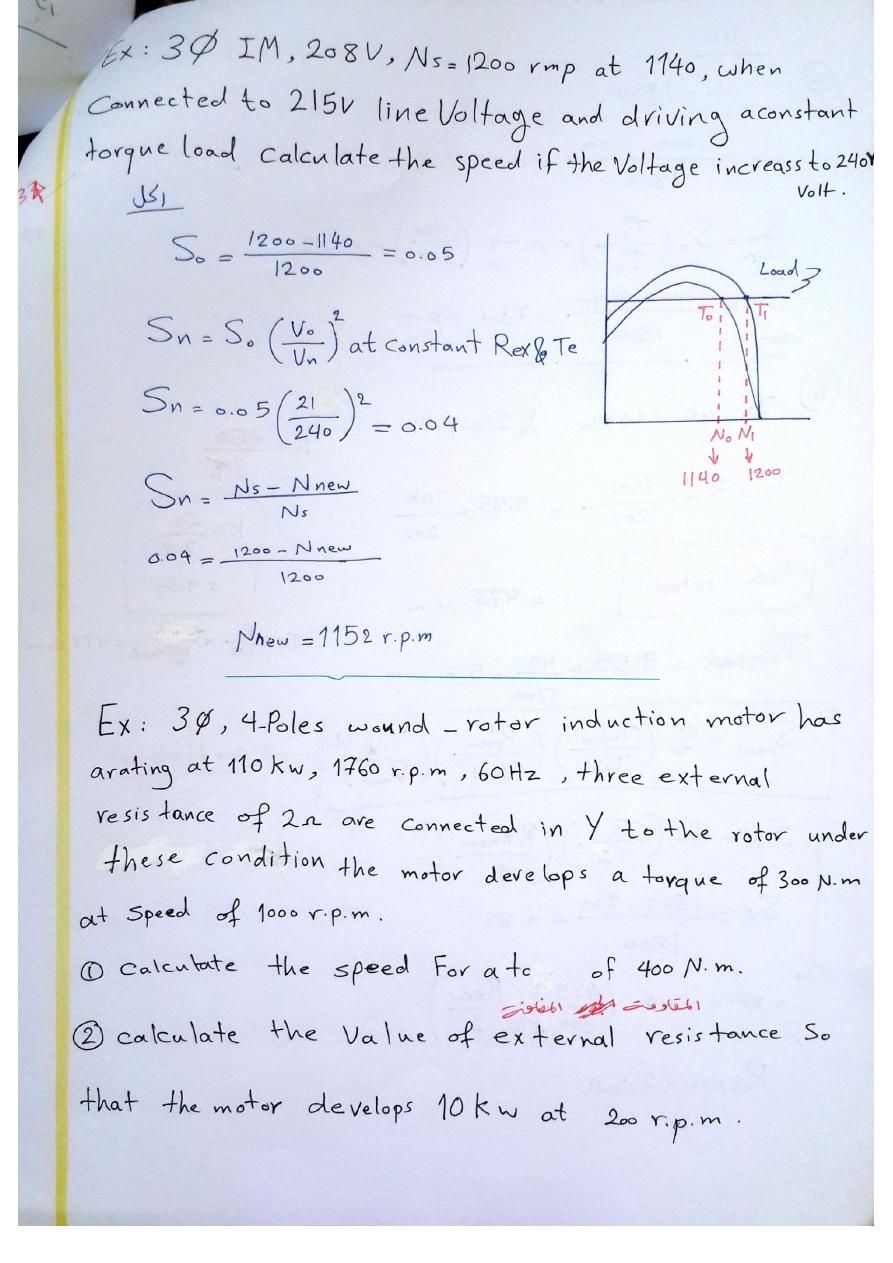 Ex: 3Ø IM, 208V, Ns=1200 rmp at 1140, when
Connected to 215V line Voltage and driving aconstant
torque load Calculate the speed if the Voltage increass to 240V
Volt.
So = 1200-1140 / 1200 = 0.05
Load
To T1
Sn = So (Vo/Vn)² at constant Rex & Te
Sn = 0.05 (21/240)² = 0.04
No N1
1140 1200
Sn = Ns - Nnew / Ns
0.04 = 1200 - Nnew / 1200
Nnew = 1152 r.p.m
Ex: 3Ø, 4-Poles wound - rotor induction motor has
arating at 110 kw, 1760 r.p.m, 60Hz, three external
resistance of 2Ω are connected in Y to the rotor under
these condition the motor develops a torque of 300 N.m
at speed of 1000 r.p.m.
① Calculate the speed For a tc of 400 N.m.
المقاومة
② calculate the Value of external resistance So
that the motor develops 10 kw at 200 r.p.m.